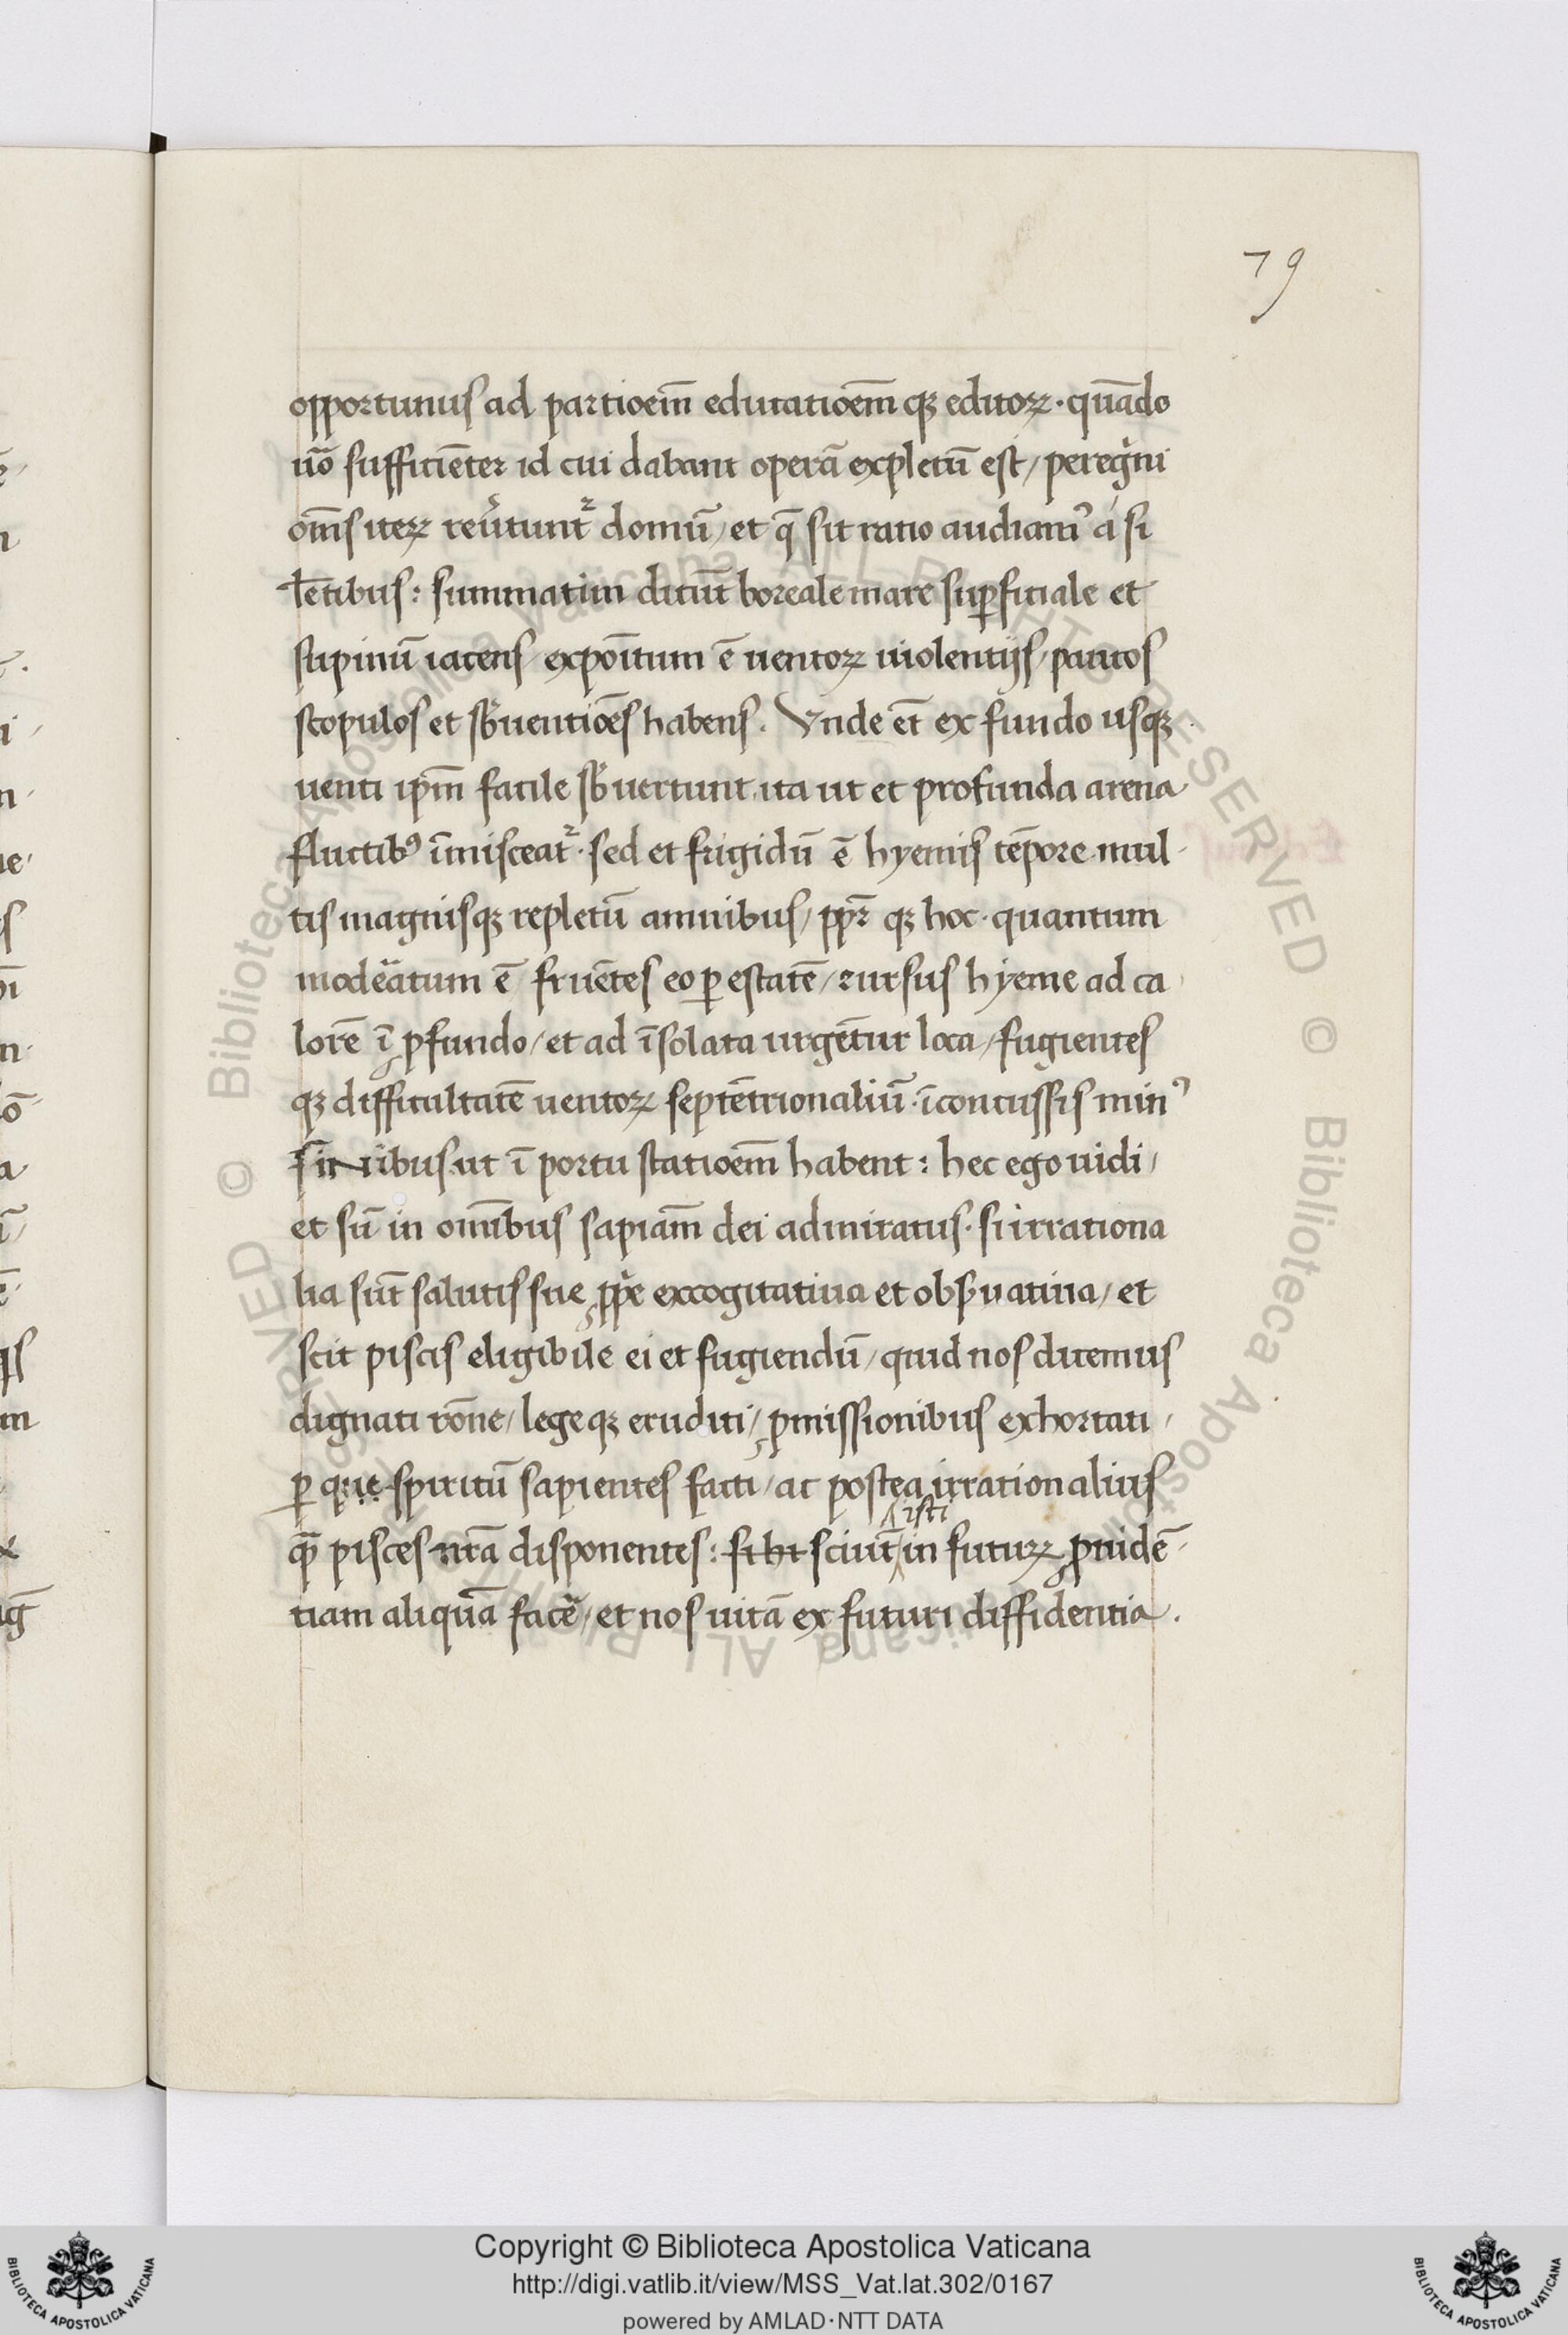 79
opportunus ad partioem̄ educatioem̄ qꝫ editoꝝ · quādo
uō sufficiēter id cui dabant operā expletū est / peregͥni
om̄s iteꝝ reuͥtuntᷣ domū / et q̄ sit ratio audiamꝰ á si
lētibus : summatim dicūt boreale mare suꝑficiale et
supinū iacens expoītum ē uentoꝝ uiolentijs / paucos
scopulos et sb̾uentiōes habens . Vnde et̄ ex fundo usqꝫ
uenti ipm̄ facile sb̾uertunt , ita ut et profunda arena
fluctibꝰ īmisceatᷣ · sed et frigidū ē hyemis tēpore mul
tis magnisqꝫ repletū amnibus / ppt̄ qꝫ hoc · quantum
modeᷓatum ē fruētes eo ꝑ estatē / rursus hyeme ad ca
lorē ī ꝓfundo / et ad īsolata urgētur loca / fugientes
qꝫ difficultatē uentoꝝ septētrionaliū · īconcussis minꝰ
sinibus ut ī portu statioem̄ habent : hec ego uidi /
et sū in om̄ibus sapiam̄ dei admiratus · si irrationa
lia sūt salutis sue ꝓpͥe excogitatiua et obsꝰuatiua / et
scit piscis eligibile ei et fugiendū / quid nos dicemus
dignati rōne / lege qꝫ eruditi / ꝓmissionibus exhortati /
ꝑ que spiritū sapientes facti / ac postea irrationalius
qͣ̄ pisces nr̄a disponentes : si hi sciūt in futuꝝ ꝓuidē
isti
tiam aliquā facẽ / et nos uitā ex futuri diffidentia .
Copyright © Biblioteca Apostolica Vaticana
http://digi.vatlib.it/view/MSS_Vat.lat.302/0167
powered by AMLAD·NTT DATA
BIBLIOTECA APOSTOLICA VATICANA
BIBLIOTECA APOSTOLICA VATICANA